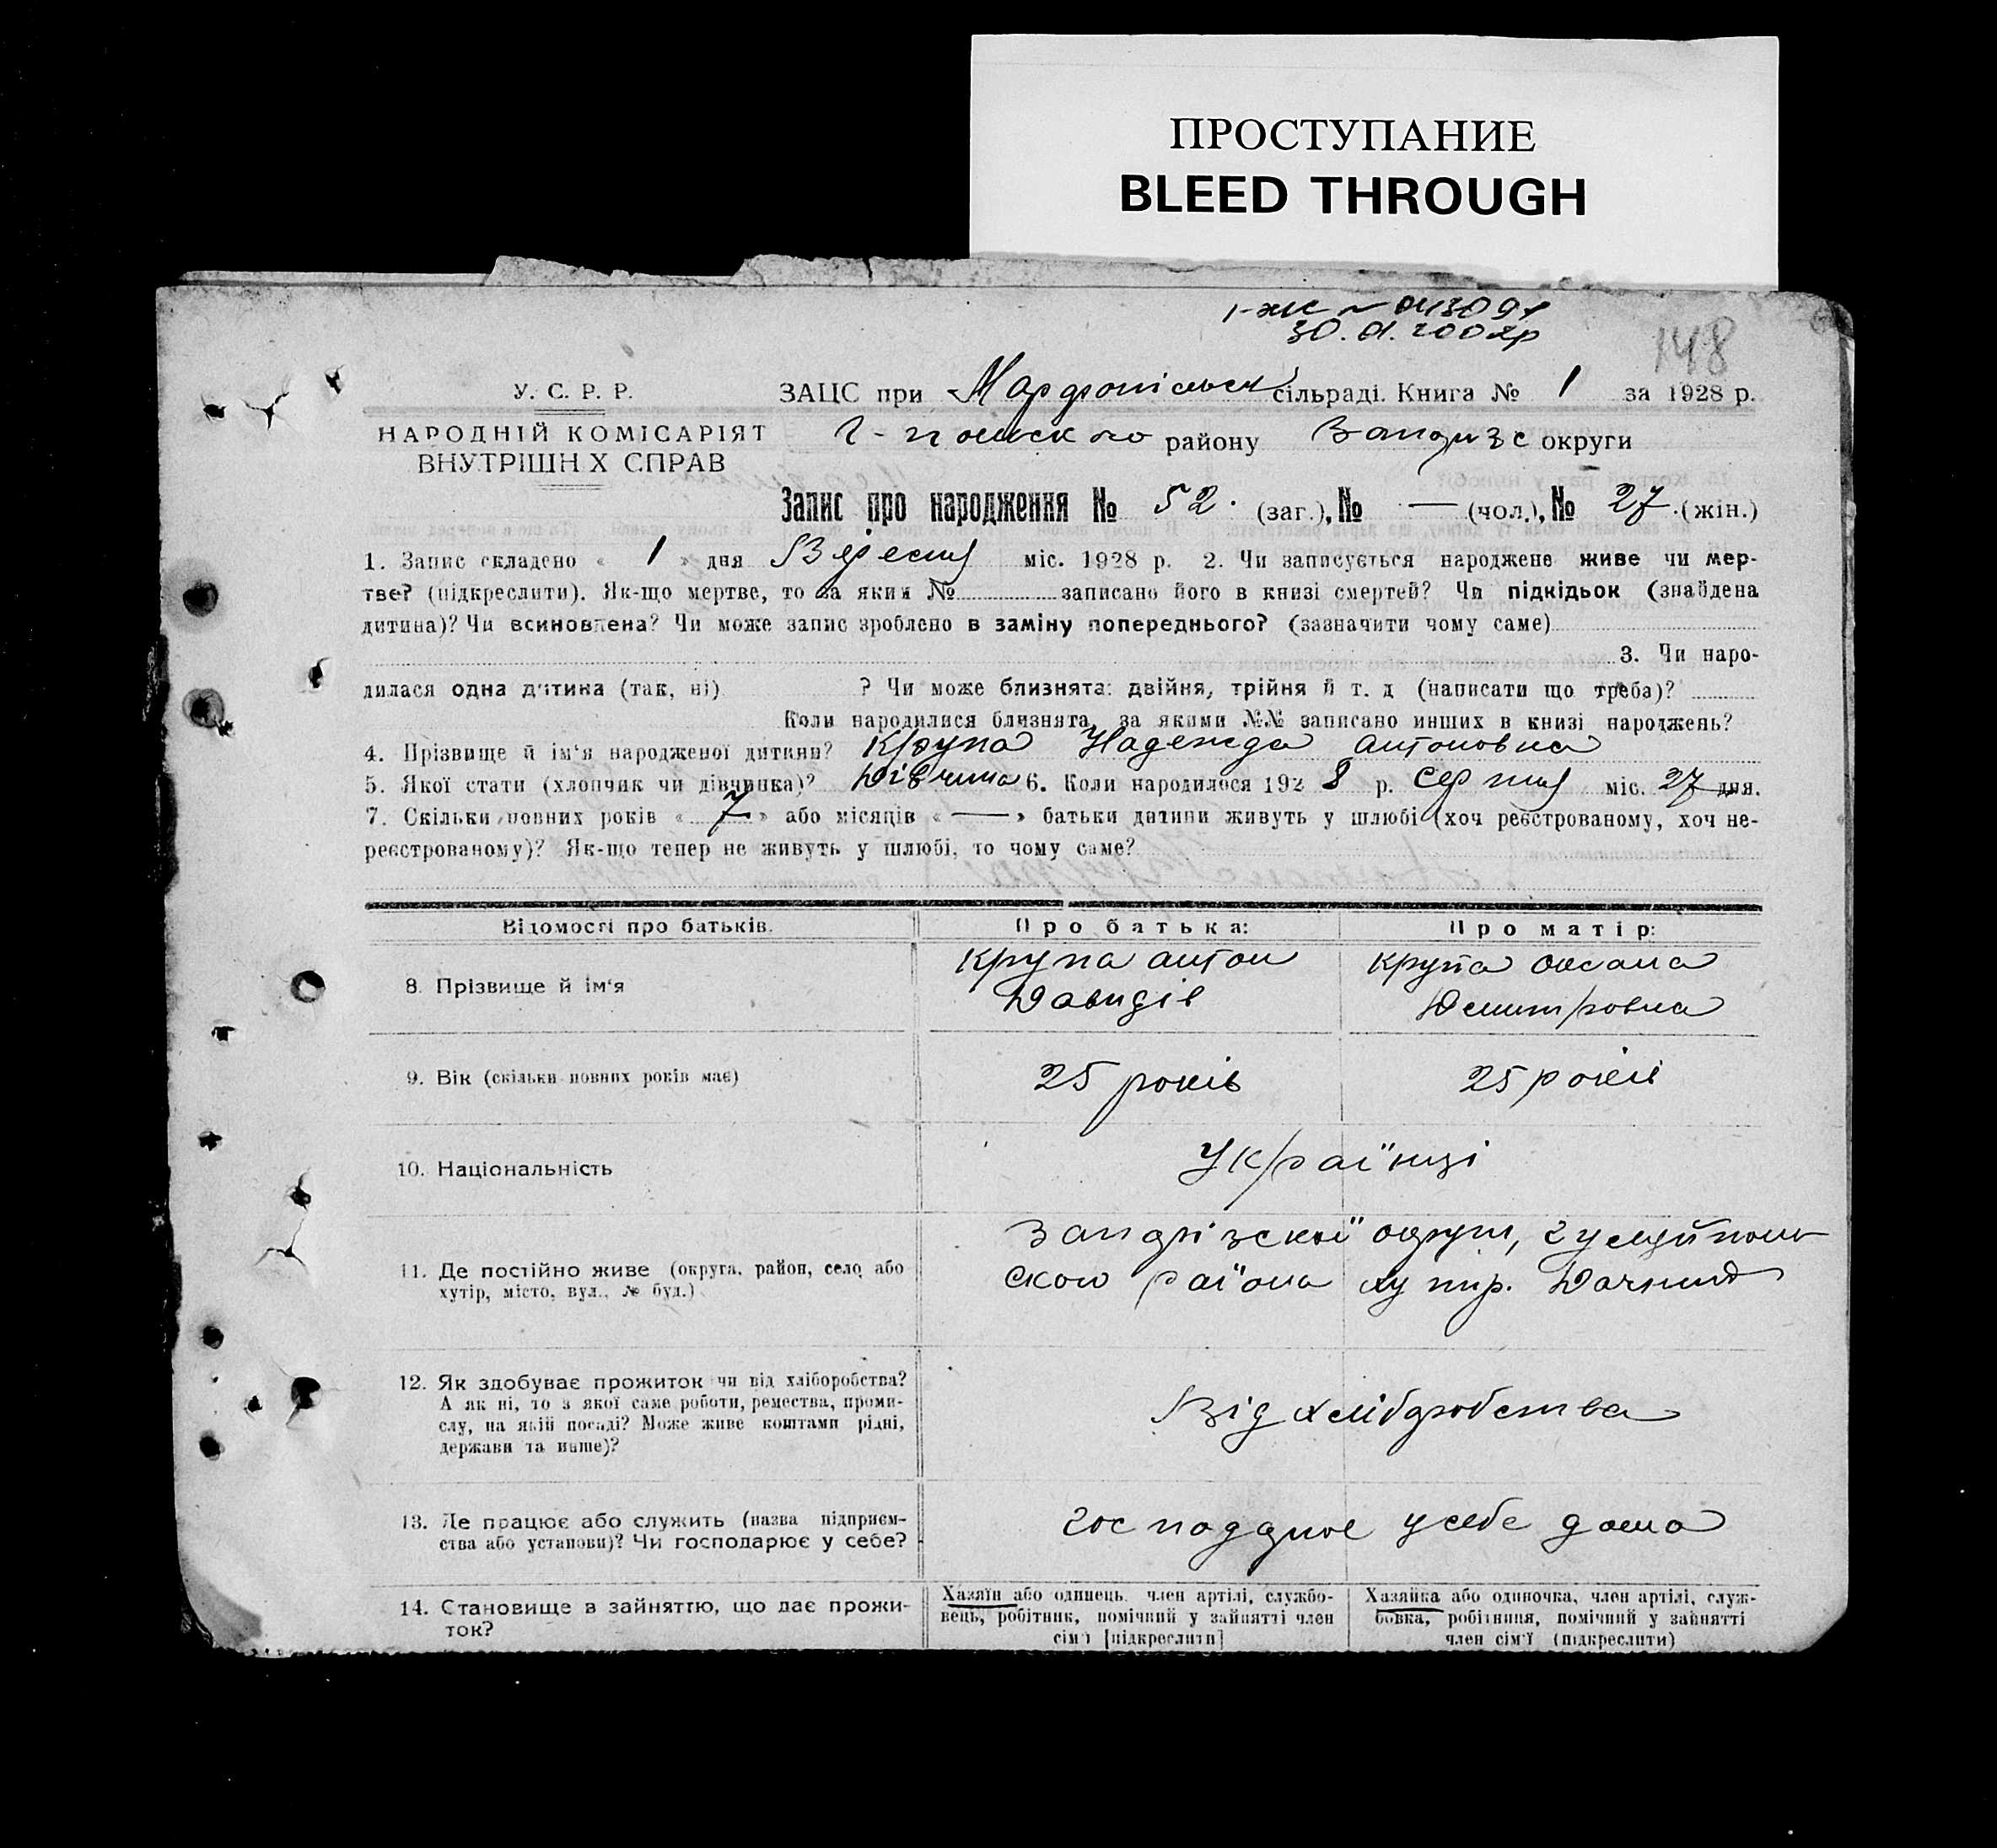 ПРОСТУПАНИЕ
BLEED THROUGH
30.01.2002р
148
У. С. Р. Р.
НАРОДНІЙ КОМІСАРІЯТ
ВНУТРІШН Х СПРАВ
ЗАЦС при Марфопільськ сільраді. Книга № 1 за 1928 р.
Г-польского району Запоріз округи
Запис про народження № 52. (заг.), № — (чол.), № 27. (жін.)
1. Запис складено « 1 » дня Вересня міс. 1928 р. 2. Чи записується народжене живе чи мер-
тве? (підкреслити). Як-що мертве, то за яким № записано його в книзі смертей? Чи підкідьок (знайдена
дитина)? Чи всиновлена? Чи може запис зроблено в заміну попереднього? (зазначити чому саме)
3. Чи наро-
дилася одна дитина (так, ні) ? Чи може близнята: двійня, трійня й т. д (написати що треба)?
Коли народилися близнята, за якими №№ записано инших в книзі народжень?
4. Прізвище й ім'я народженої дитини? Крупа Надежда Антоновна
5. Якої стати (хлопчик чи дівчинка)? Дівчина 6. Коли народилося 1928 р. серпня міс. 27 дня.
7. Скільки повних років « 7 » або місяців « — » батьки дитини живуть у шлюбі (хоч реєстрованому, хоч не-
реєстрованому)? Як-що тепер не живуть у шлюбі, то чому саме?
Відомості про батьків. Про батька: Про матір:
8. Прізвище й ім'я
Крупа Антон
Давидів
Крупа Оксана
Демитровна
9. Вік (скільки повних років має) 25 років 25 років
10. Національність Українці
11. Де постійно живе (округа, район, село або
хутір, місто, вул., № буд.)
Запорізскої округи, Гуляйполь-
ского района хутір.
12. Як здобуває прожиток чи від хліборобства?
А як ні, то з якої саме роботи, ремества, проми-
слу, на якій посаді? Може живе коштами рідні,
держави та инше)?
Від хліборобства
13. Де працює або служить (назва підприєм-
ства або установи)? Чи господарює у себе?
господарює у себе дома
14. Становище в зайняттю, що дає прожи-
ток?
Хазяїн або одинець, член артілі, службо-
вець, робітник, помічний у зайнятті член
сім'ї [підкреслити]
Хазяйка або одиночка, член артілі, служ-
бовка, робітниця, помічний у зайнятті
член сім'ї (підкреслити)